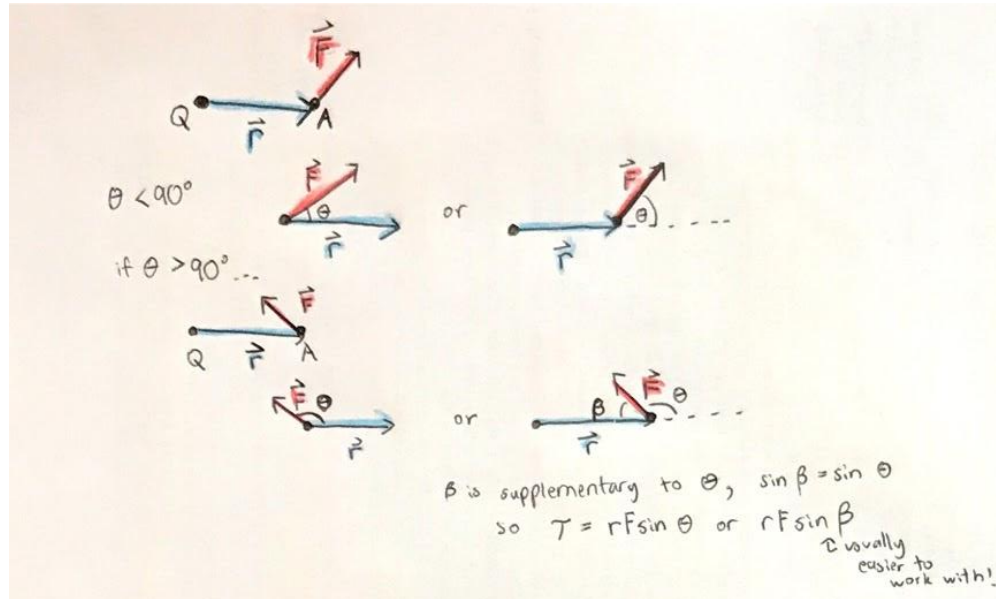 F
Q r A
θ < 90° F θ r or F θ r
if θ > 90° ...
F
Q r A
F θ r or β F θ r
β is supplementary to θ, sin β = sin θ
so τ = rF sin θ or rF sin β
↑ usually
easier to
work with!